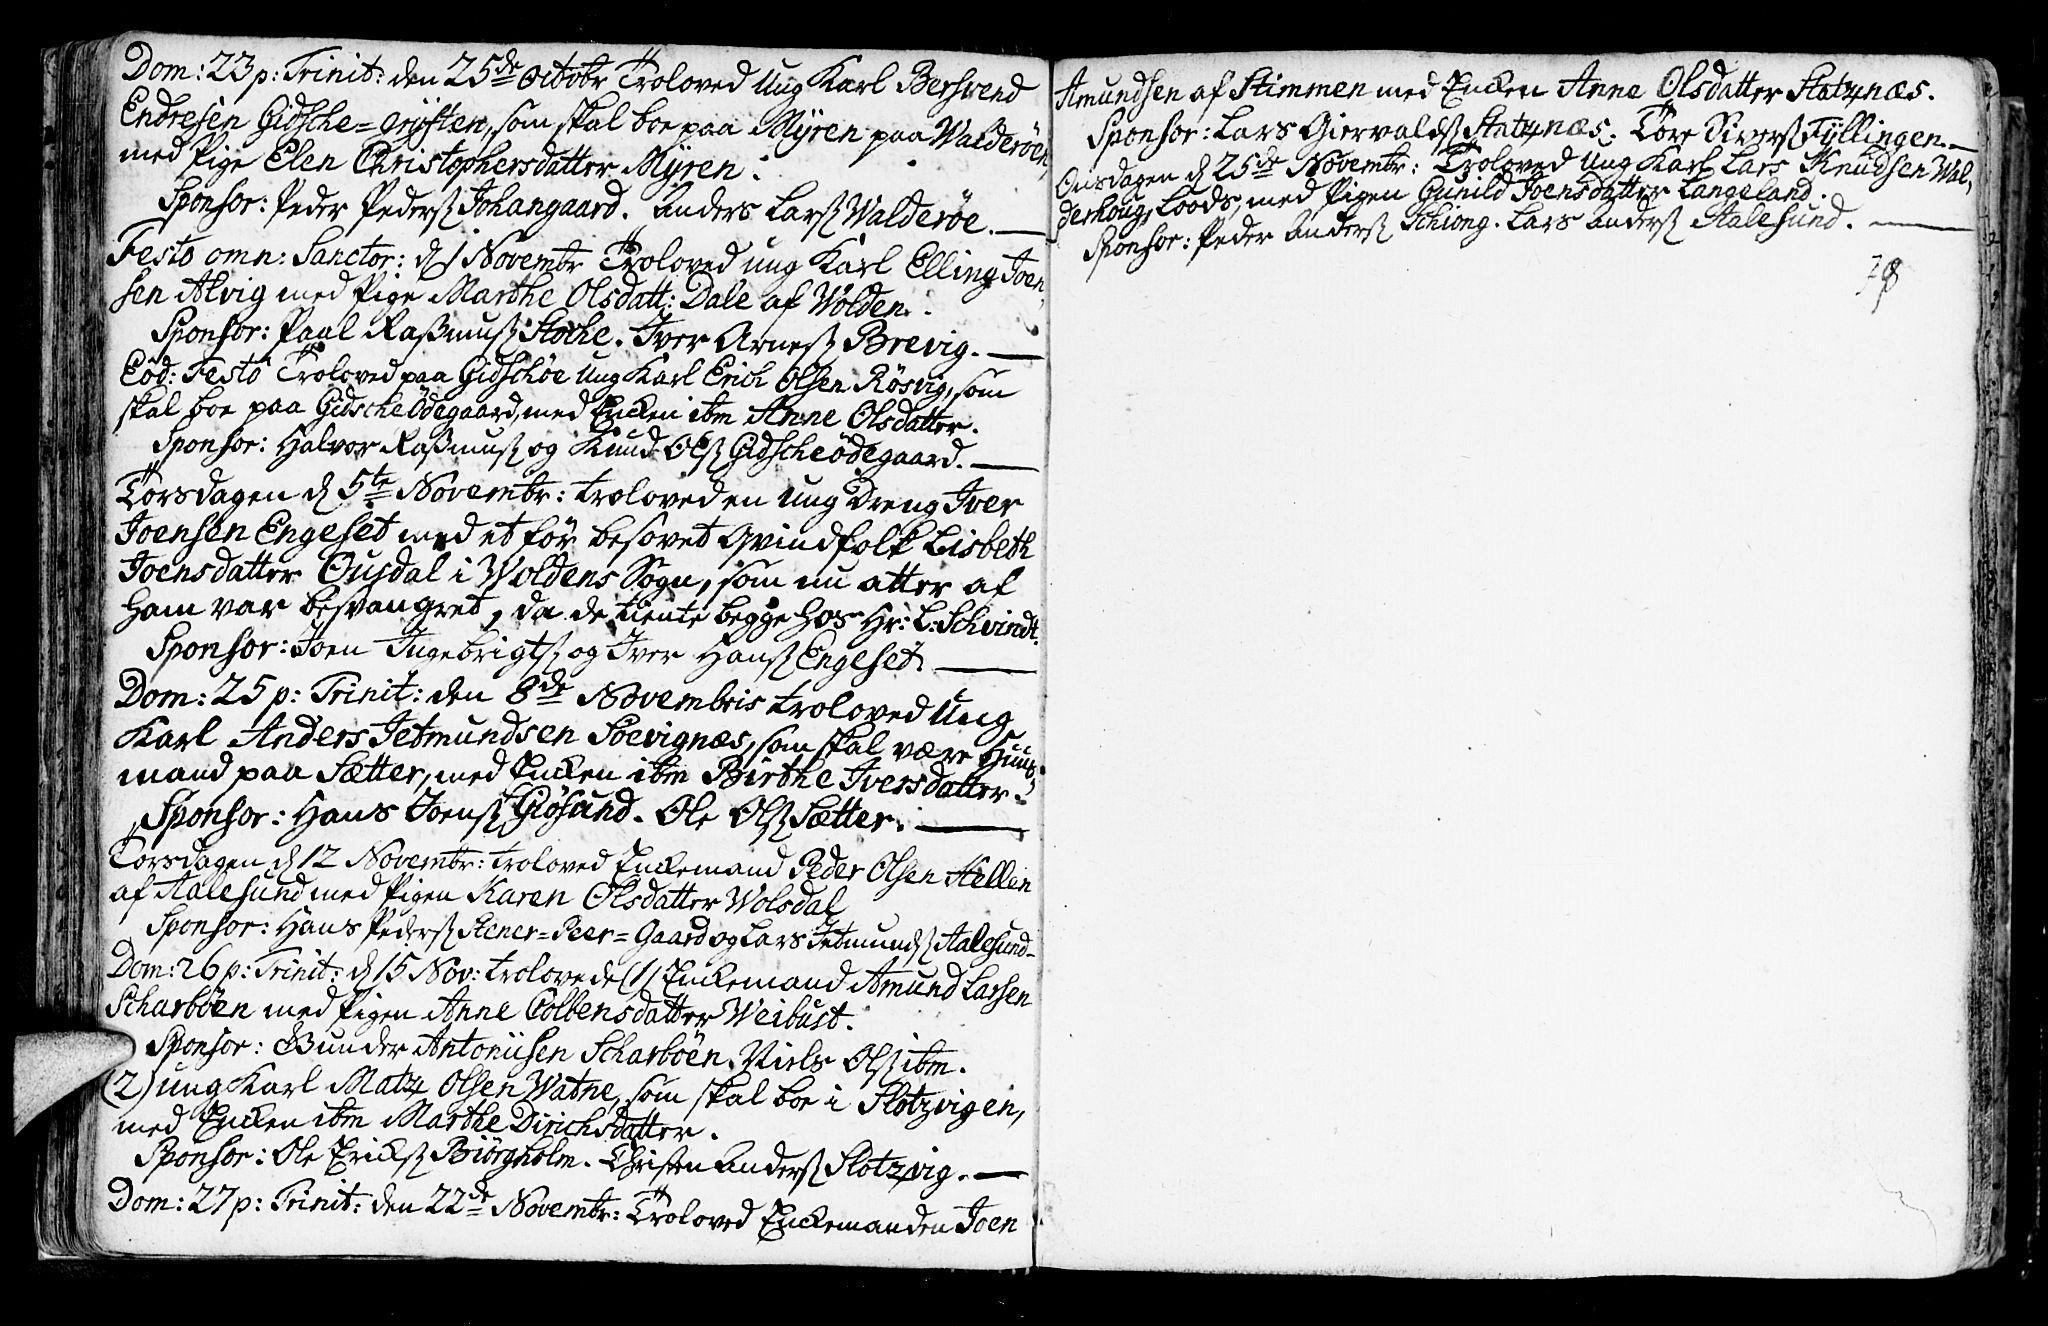 Dom: 23 p: Trinit: den 25de Octobr Troloved Ung Karl Bersvend
Endresen Gidsche=grøften, som skal boe paa Myren paa Walderöen,
med Pige Elen Christophersdatter Myren.
Sponsor: Peder Pederss Johangaard. Anders Larss Walderöe.
Festo omn: Sanctor: d 1 Novembr Troloved ung Karl Elling Joen
sen Alvig med Pige Marthe Olsdatt: Dale af Wolden.
Sponsor: Paal Rasmuss Stoche. Iver Arness Brevig.
Eod: Festo Troloved paa Gidschöe Ung Karl Erich Olsen Rösvig, som
skal boe paa Gidsche Ödegaard, med Encken ibm Anne Olsdatter.
Sponsor: Halvor Rasmuss og Knud Olss Gidscheödegaard.
Torsdagen d 5te Novembr: troloved en ung Dreng Iver
Joensen Engeset med et för besovet Qvindfolk Lisbeth
Joensdatter Ousdal i Woldens Sogn, som nu atter af
ham var besvangret, da de tiente begge hos Hr: L: Schvindt.
Sponsor: Joen Ingebrigtss og Iver Hanss Engeset.
Dom: 25 p: Trinit: den 8de Novembris troloved Ung
Karl Anders Jetmundsen Soevignæs, som skal være Huus
mand paa Sætter, med Encken ibm Birthe Iversdatter.
Sponsor: Hans Joenss Giösund. Ole Olss Sætter.
Torsdagen d 12 Novembr: troloved Enckemand Peder Olsen Hellen
af Aalesund med Pigen Karen Olsdatter Wolsdal
Sponsor: Hans Pederss Stener=Peer=Gaard og Lars Jetmundss Aalesund
Dom: 26 p: Trinit: d 15 Nov: trolovede (1) Enckemand Amund Larsen
Scharböen med Pigen Anne Colbensdatter Weibust.
Sponsor: Gunder Antoniisen Scharböen. Niels Olss ibm.
(2) ung Karl Matz Olsen Watne, som skal boe i Slotzvigen,
med Encken ibm Marthe Dirichsdatter.
Sponsor: Ole Erickss Biörgholm. Christen Anderss Slotzvig.
Dom: 27 p: Trinit: den 22de Novembr: Troloved Enckemanden Joen
Amundsen af Stimmen med Encken Anne Olsdatter Statznæs.
Sponsor: Lars Giervaldss Statznæs. Tore Siverss Fyllingen.
Onsdagen d 25de Novembr: Troloved Ung Karl Lars Knudsen Wal,
derhoug, Loods, med Pigen Gunild Joensdatter Langeland.
Sponsor: Peder Anderss Schiong. Lars Anderss Aalesund.